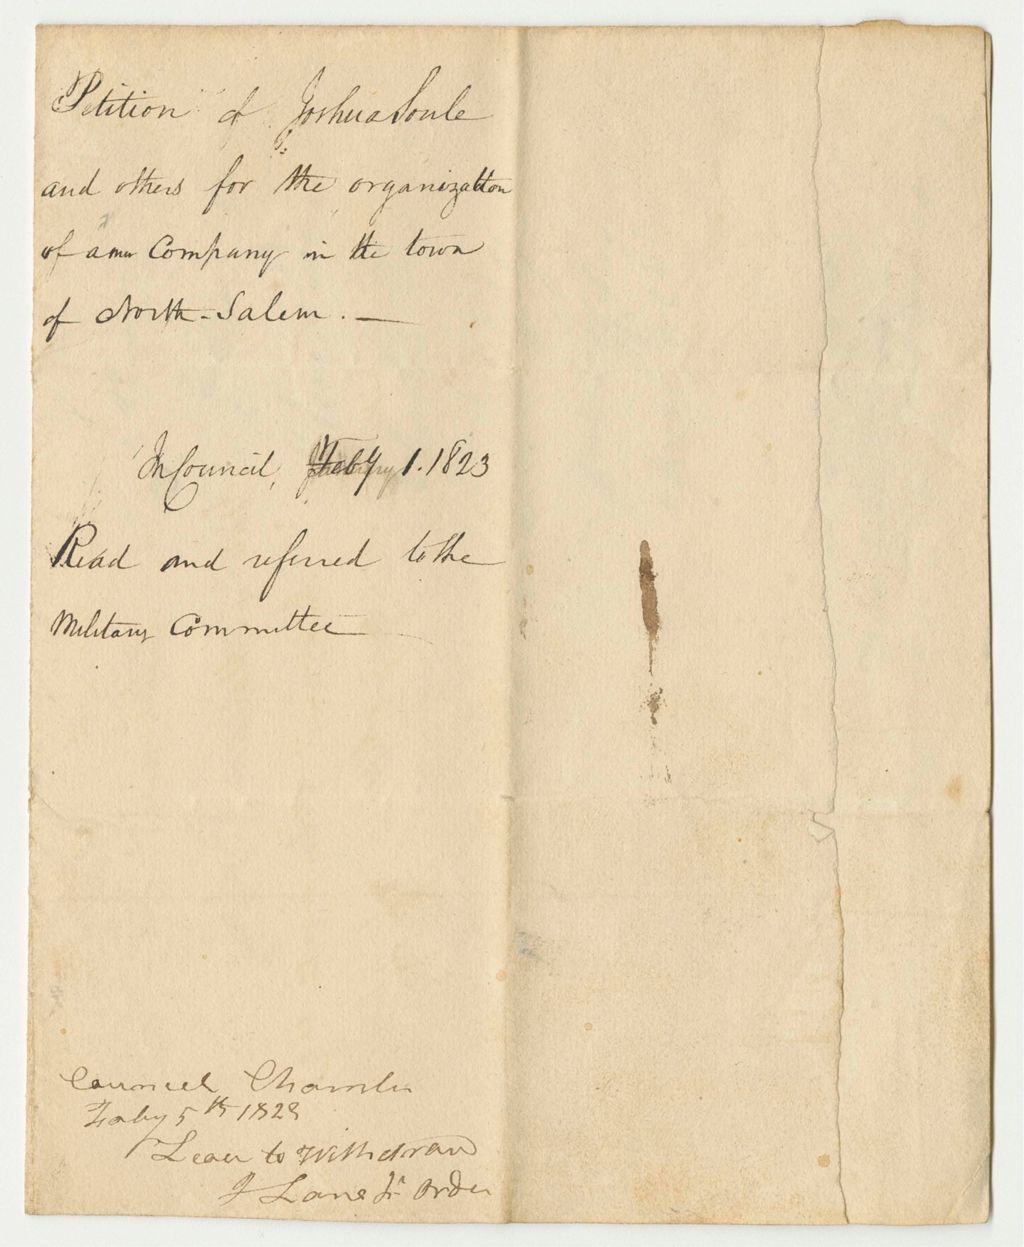 Petition of Joshua Soule
and others for the organization
of a new Company in the town
of North-Salem. —
In Council, Feby 1. 1823
Read and referred to the
Military Committee
Councel Chamber
Feby 5th 1823
Leave to Withdraw
J Lane Jr Order